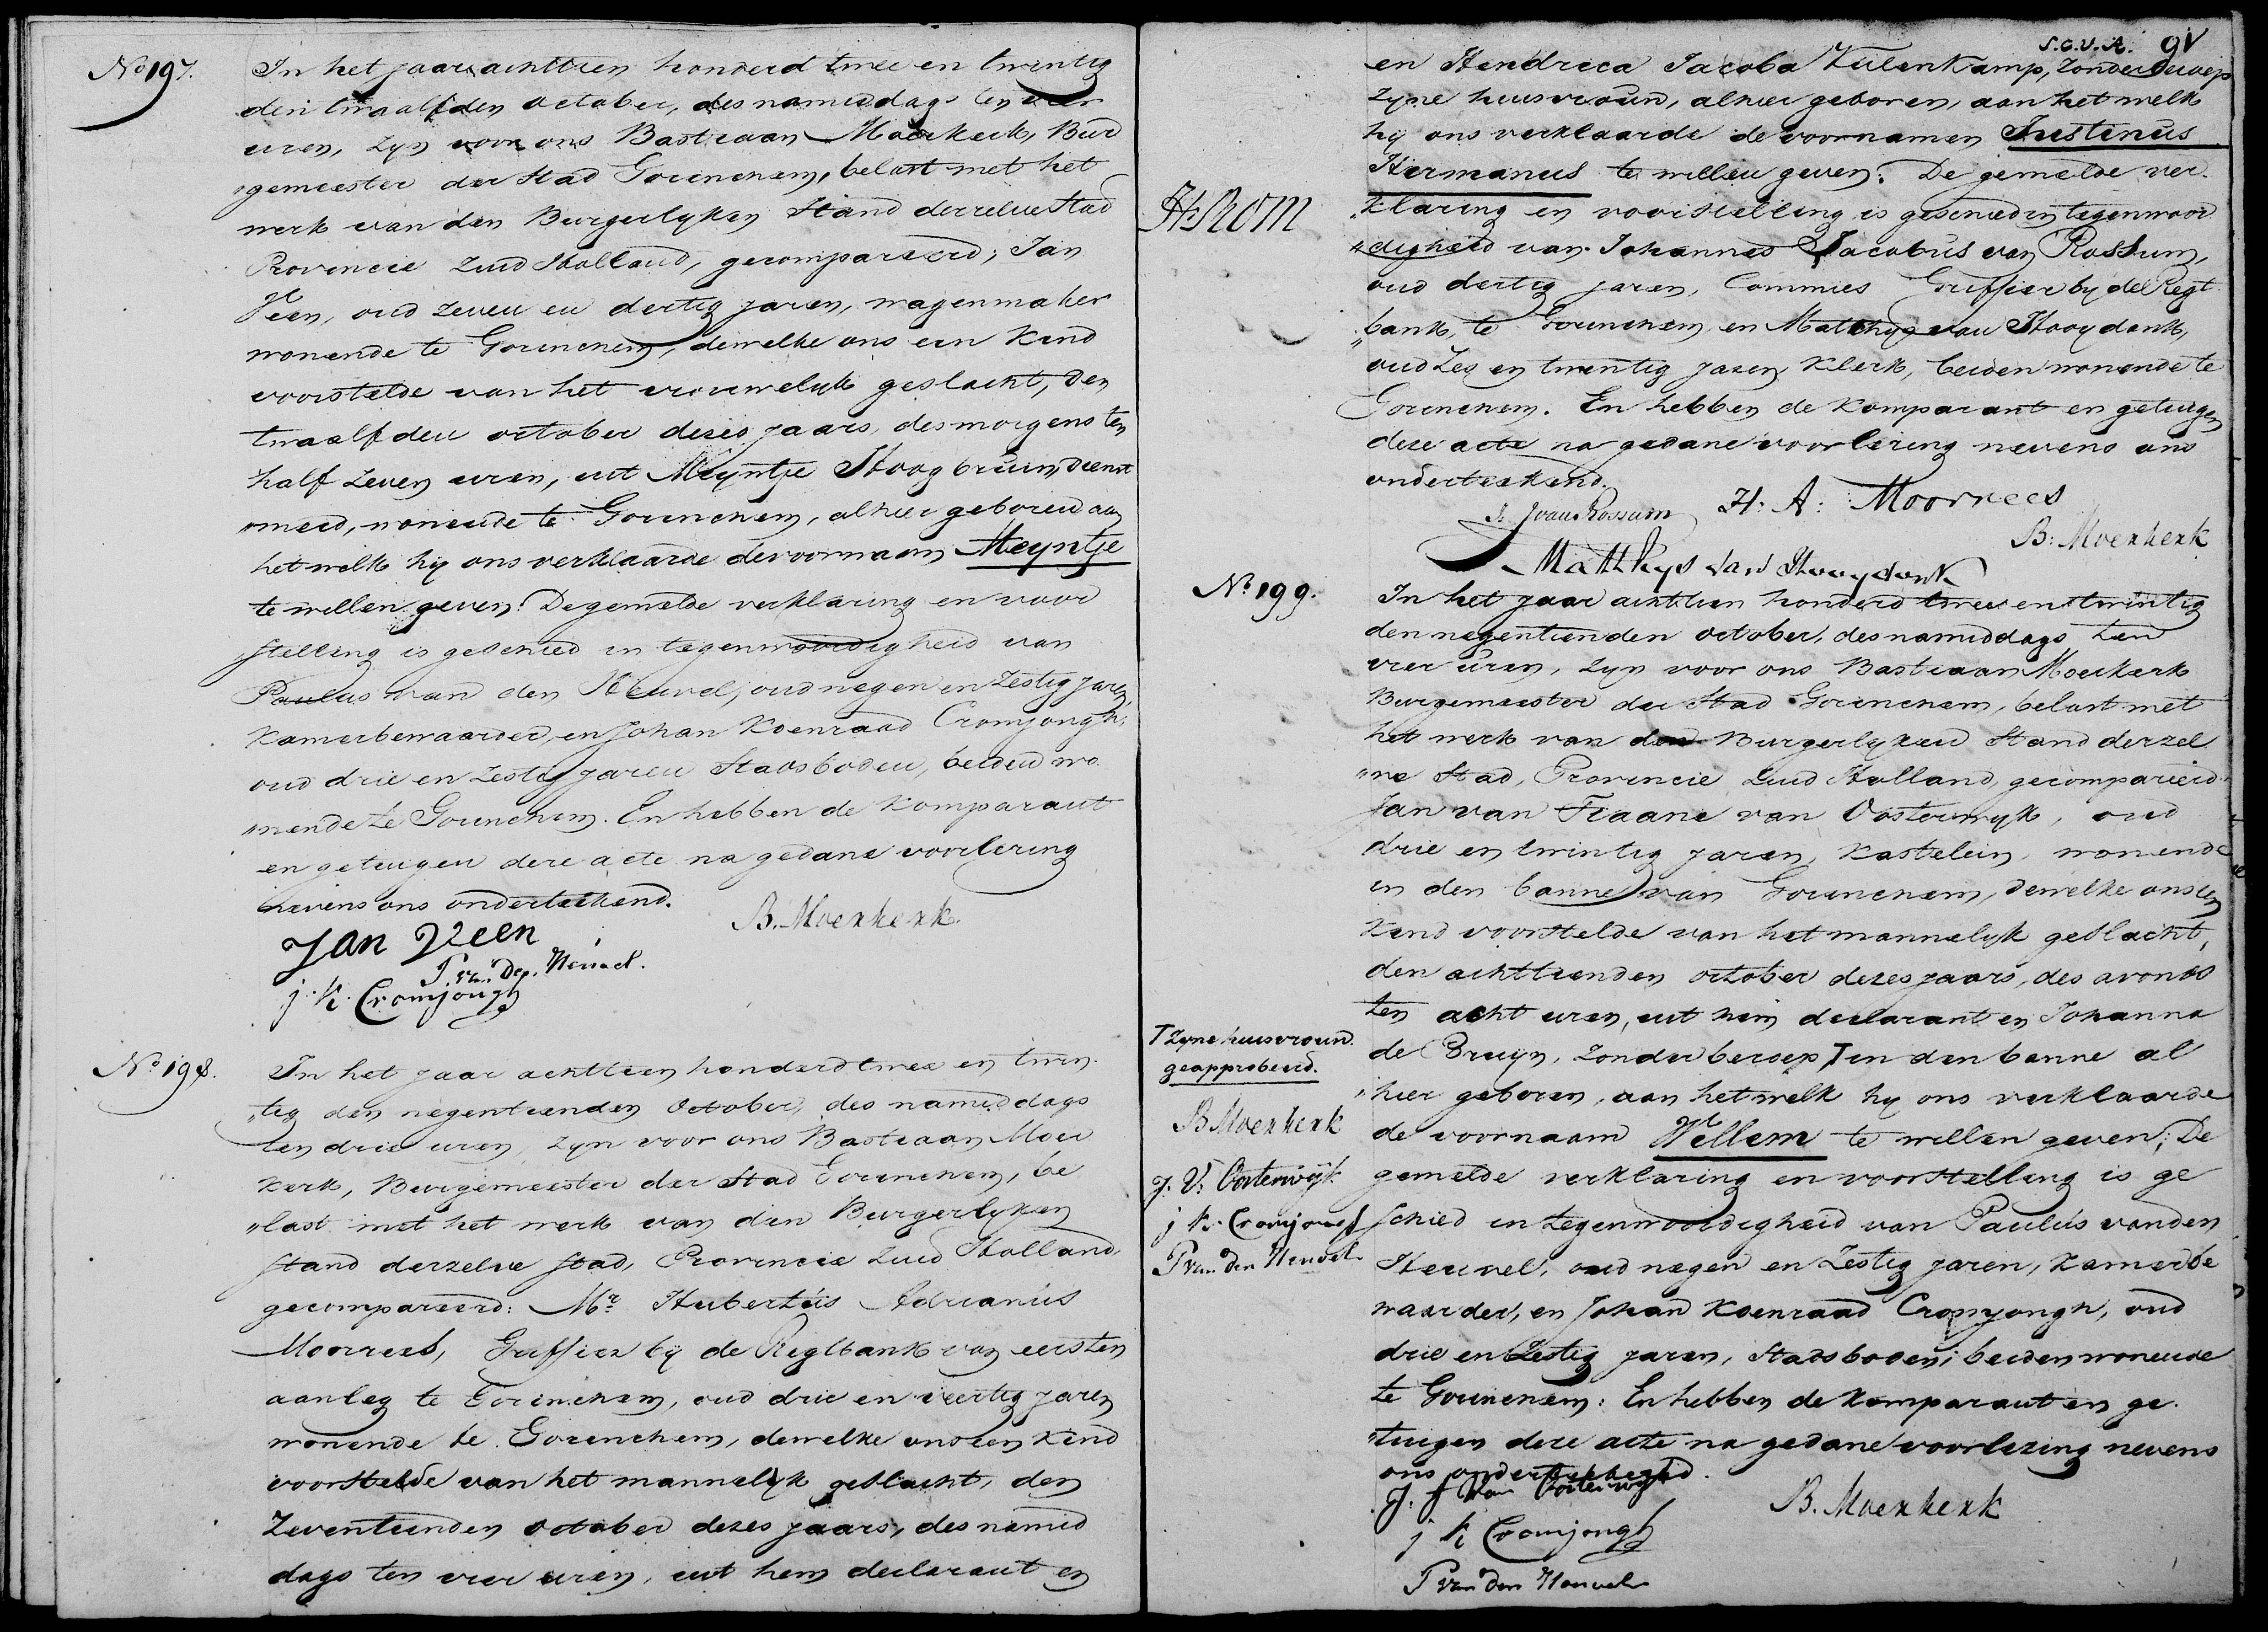 No 197.
In het jaar achttien honderd twee en twintig
den twaalfden october, des namiddags ten vier
uren, zyn voor ons Bastiaan Moerkerk, Bur
"gemeester der Stad Gorinchem, belast met het
werk van den Burgerlyken Stand derzelve Stad
Provincie Zuid Holland, gecompareerd, Jan
Veen, oud zeven en dertig jaren, wagenmaker
wonende te Gorinchem, dewelke ons een kind
voorstelde van het vrouwelyk geslacht, den
twaalfden october dezes jaars, des morgens ten
half zeven uren, uit Meyntje Hoogbruin, dienst
"meid, wonende te Gorinchem, alhier geboren aan
het welk hy ons verklaarde de voornaam Meyntje
te willen geven: De gemelde verklaring en voor
stelling is geschied in tegenwoordigheid van
Paulus van den Heuvel, oud negen en zestig jaren,
kamerbewaarder, en Johan Koenraad Cromjongh,
oud drie en zestig jaren Stadsboden, beiden wo
"nende te Gorinchem. En hebben de komparant
en getuigen deze acte na gedane voorlezing
nevens ons onderteekend.
B. Moerkerk.
Jan Veen
P. van den Heuvel.
j. K. Cromjongh
No 198.
In het jaar achttien honderd twee en twin
"tig den negentienden October, des namiddags
ten drie uren, zyn voor ons Bastiaan Moer
kerk, Burgemeester der Stad Gorinchem, be
"last met het werk van den Burgerlyken
Stand derzelve Stad, Provincie Zuid Holland,
gecompareerd: Mr. Hubertus Adrianus
Moorrees, Griffier by de Regtbank van eersten
aanleg te Gorinchem, oud drie en veertig jaren
wonende te Gorinchem, dewelke ons een kind
voorstelde van het mannelyk geslacht, den
Zeventienden october dezes jaars, des namid
dags ten vier uren, uit hem declarant en
S.C.V.A. 91
en Hendrica Jacoba Kuilenkamp, zonder beroep
zyne huisvrouw, alhier geboren, aan het welk
hy ons verklaarde de voornamen Justinus
Hermanus te willen geven: De gemelde ver
"klaring en voorstelling is geschied in tegenwoor
"digheid van Johannes Jacobus van Rossum,
oud dertig jaren, Commies Griffier by de Regt
"bank, te Gorinchem, en Matthys van Hooydonk,
oud zes en twintig jaren Klerk, beiden wonende te
Gorinchem. En hebben de komparant en getuigen
deze acte na gedane voorlezing nevens ons
onderteekend.
J. J van Rossum H: A: Moorrees
B. Moerkerk
Matthys van Hooydonk
No 199.
In het jaar achttien honderd twee en twintig
den negentienden october, des namiddags ten
vier uren, zyn voor ons Bastiaan Moerkerk
Burgemeester der Stad Gorinchem, belast met
het werk van den Burgerlyken Stand derzel
"ve Stad, Provincie Zuid Holland, gecompareerd
Jan van Tiaane van Oosterwyk, oud
drie en twintig jaren, kastelein, wonende
in den banne van Gorinchem, dewelke ons een
kind voorstelde van het mannelyk geslacht,
den achttienden october dezes jaars, des avonds
ten acht uren, uit hem declarant en Johanna
de Bruyn, zonder beroep, T in den banne al
"hier geboren, aan het welk hy ons verklaarde
de voornaam Willem te willen geven; De
gemelde verklaring en voorstelling is ge
schied in tegenwoordigheid van Paulus van den
Heuvel, oud negen en zestig jaren, kamerbe
waarder, en Johan Koenraad Cromjongh, oud
drie en zestig jaren, Stadsboden, beiden wonende
te Gorinchem: En hebben de komparant en ge
"tuigen deze acte na gedane voorlezing nevens
ons onderteekend.
J. van Oosterwyk
B. Moerkerk
j K Cromjongh
P van den Heuvel
T zyne huisvrouw.
geapprobeerd.
B Moerkerk
J. V: Oosterwyk
j K. Cromjongh
P van den Heuvel